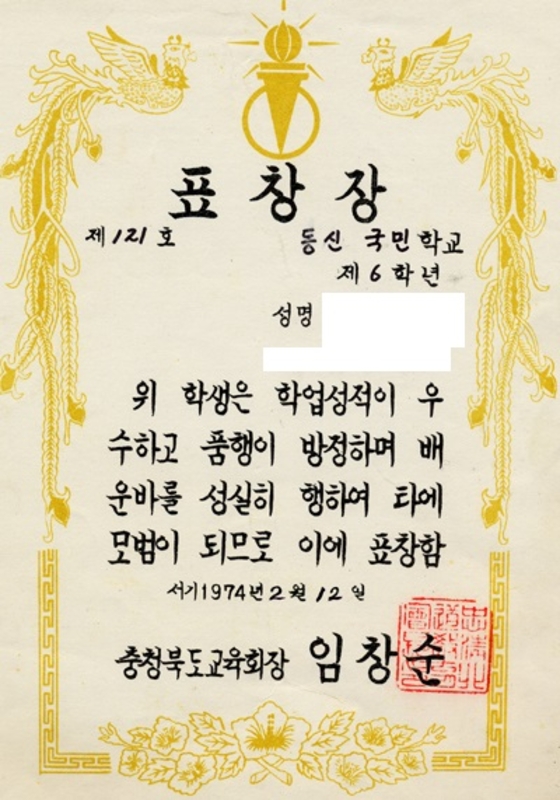 표창장
제 121 호
동신 국민학교
제 6 학년
성명
위 학생은 학업성적이 우
수하고 품행이 방정하며 배
운바를 성실히 행하여 타에
모범이 되므로 이에 표창함
서기1974년 2월 12일
충청북도교육회장 임창순